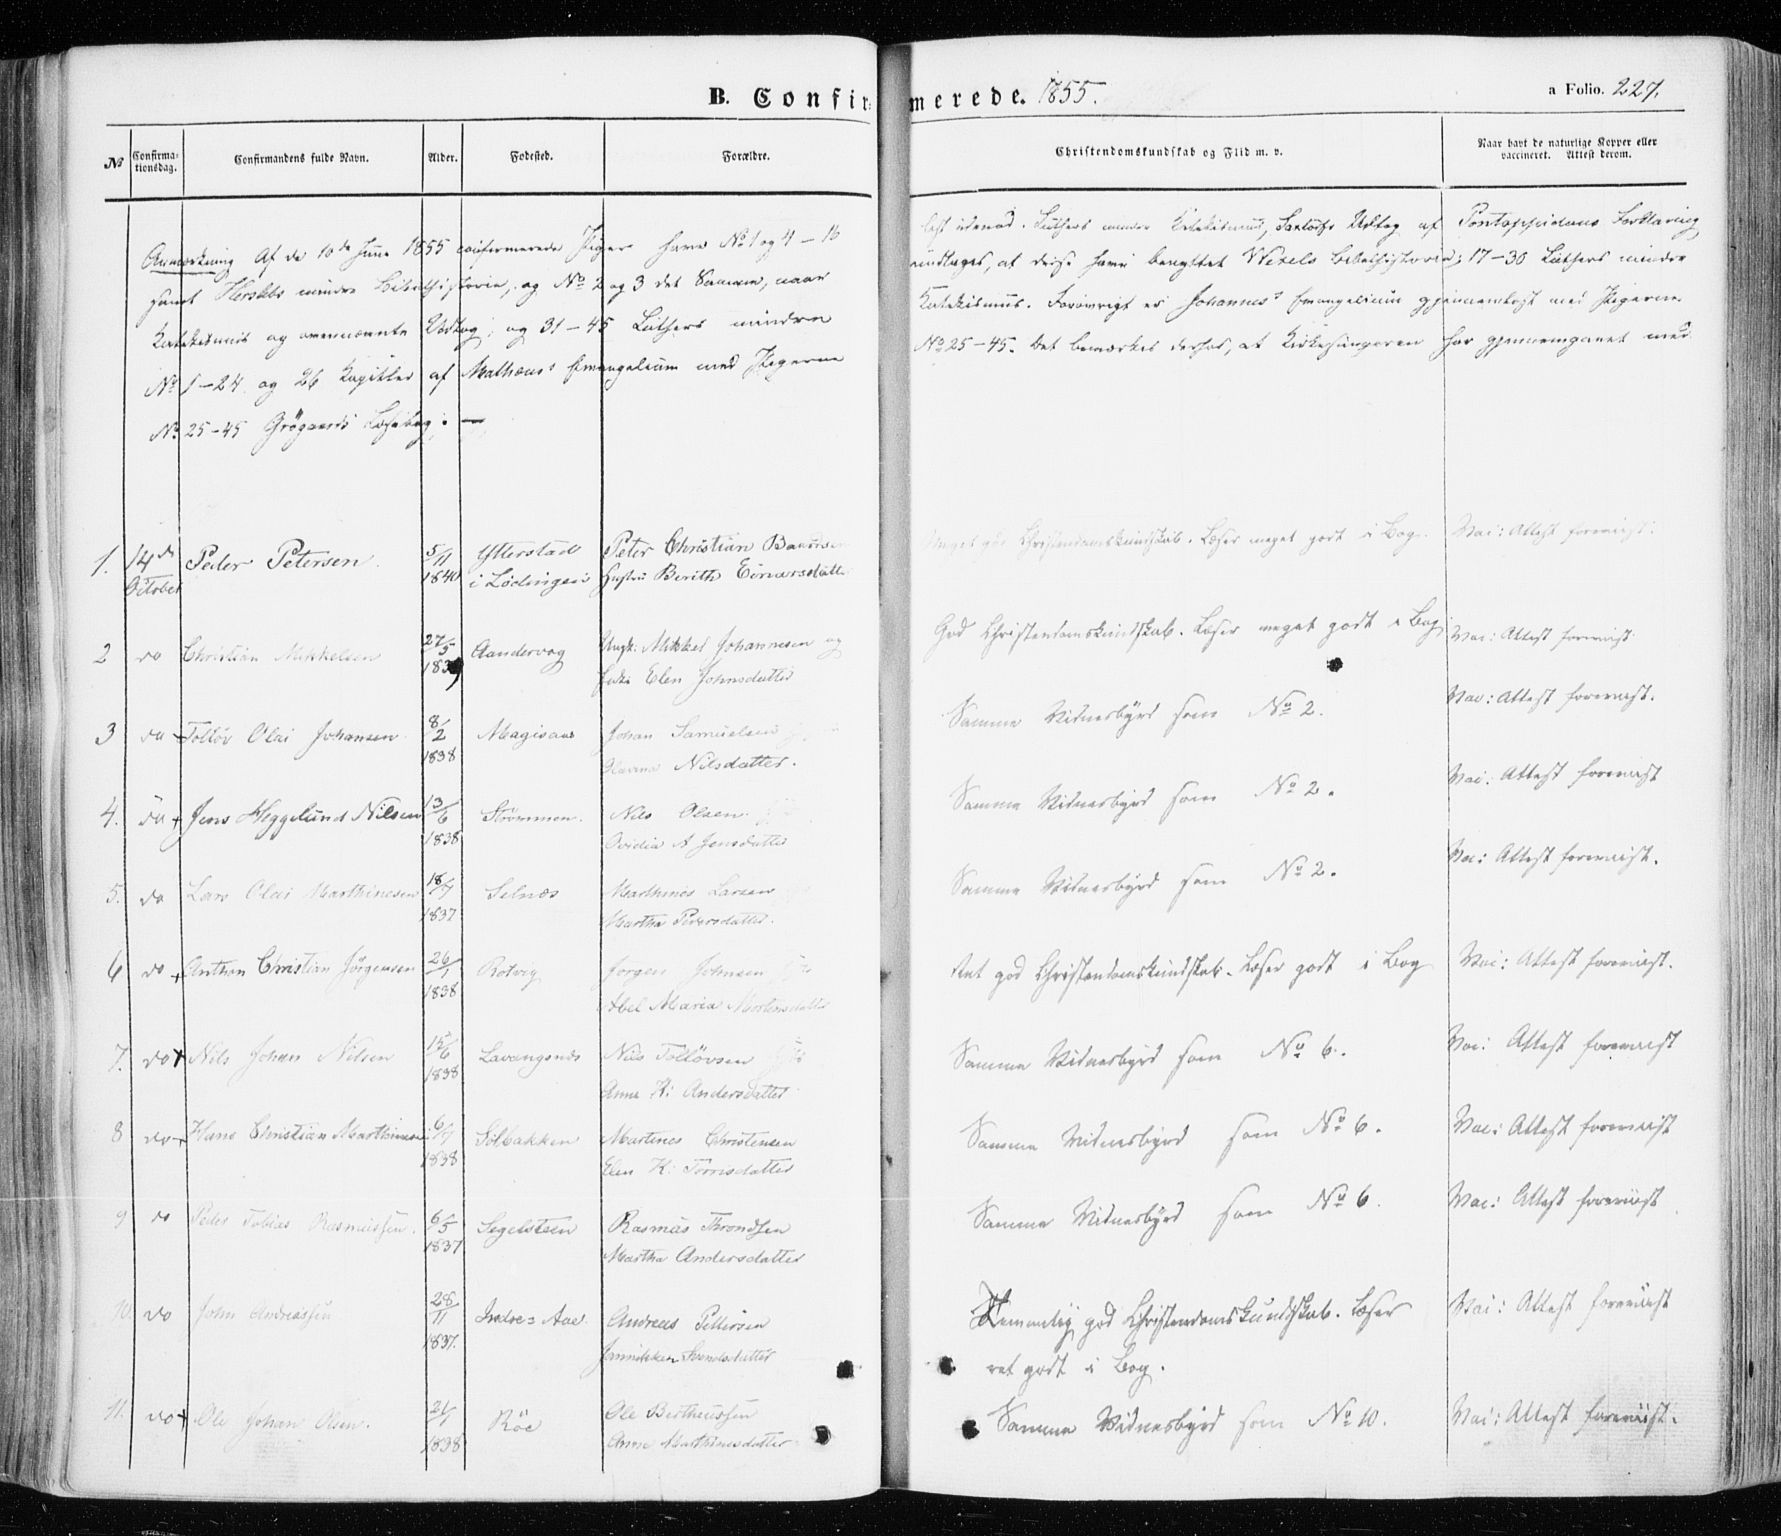 B. Confirmerede. 1855.
a Folio. 227.
No
Confirmationsdag.
Confirmandens fulde Navn.
Alder.
Fodested.
Forældre.
Christendomskundskab og Flid m. v.
Naar havt de naturlige Kopper eller vaccineret. Attest derom.
Anmærkning Af de 10de Juni 1855 confirmerede Piger have No 1 og 4 – 16
læst udenad. Luthers mindre Katekismus, Udtog af Pontoppidans Forklaring
samt Herslebs mindre Bibelhistorie, og No 2 og 3 det Samme, naar
undtages, at disse have benyttet Wexels Bibelhistorie; 17–30 Luthers mindre
Katekismus og ovennævnte Udtog; og 31–45 Luthers mindre
Katekismus. Forøvrigt er Johannes's Evangelium gjennemlæst med Pigerne
No 1–24 og 26 Kapitler af Mathæus's Evangelium med Pigerne
No 25–45. Det bemærkes derhos, at Kirkesangeren har gjennemgaaet med
No 25–45 Grøgaards Læsebog. —
1. 14de October Peder Petersen. 5/11 1840 Ytterstad i Lødingen Peter Christian Hustru Berith Einarsdatter
Meget god Christendomskundskab. Læser meget godt i Bog. Vac: Attest foreviist.
2 do Christian Mikkelsen 27/5 1839 Aandervag Ungk: Mikkel Johannesen og Elen Johnsdatter
God Christendomskundskab. Læser meget godt i Bog Vac: Attest foreviist.
3 do Tolløv Olai Johansen 8/2 1838 Johan Samuelsen Nilsdatter.
Samme Vidnesbyrd som No 2. Vac: Attest foreviist.
4. do + Jens Heggelund Nilsen 13/6 1838 Strømmen. Nils Olsen. Ovidia A Jensdatter
Samme Vidnesbyrd som No 2. Vac: Attest foreviist
5. do Lars Olai Marthinesen 18/7 1837 Selnæs Marthines Larsen Martha Pedersdatter.
Samme Vidnesbyrd som No 2. Vac: Attest foreviist.
6 do + Anthon Christian Jørgensen 26/1 1838 Rotvig Jørgen Johnsen Abel Maria Mortensdatter
Ret god Christendomskundskab. Læser godt i Bog Vac: Attest foreviist.
7. do + Nils Johan Nilsen 15/6 1838 Lavangsnæs Nils Tolløvsen Anne K: Andersdatter
Samme Vidnesbyrd som No 6. Vac: Attest foreviist
8 do + Hans Christian Marthinesen 6/7 1838 Solbakken Martines Christensen Elen K: Torrisdatter
Samme Vidnesbyrd som No 6. Vac: Attest foreviist
9 do Peder Tobias Rasmussen. 6/5 1837 Segelsteen Rasmus Throndsen Martha Andersdatter
Samme Vidnesbyrd som No 6. Vac: Attest foreviist
10 do John Andreassen 28/11 1837. Indre= Aae. Andreas Pettersen Jannikken Svendsdatter
Temmelig god Christendomskundskab. Læser ret godt i Bog. Vac: Attest foreviist
11. do + Ole Johan Olsen. 21/1 1838 Røe Ole Bertheussen Anne Marthinesdatter
Samme Vidnesbyrd som No 10. Vac: Attest foreviist.